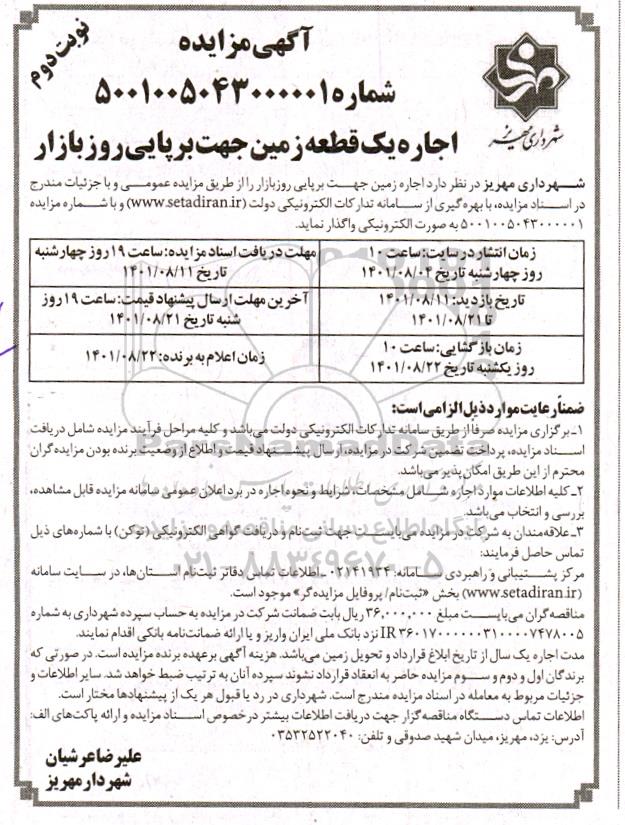 نوبت دوم
آگهی مزایده
شماره ۵۰۰۱۰۰۵۰۴۳۰۰۰۰۰۱
اجاره یک قطعه زمین جهت برپایی روز بازار
شهرداری مهریز
شهرداری مهریز در نظر دارد اجاره زمین جهت برپایی روزبازار را از طریق مزایده عمومی و با جزئیات مندرج
در اسناد مزایده، با بهره‌گیری از سامانه تدارکات الکترونیکی دولت (www.setadiran.ir) و با شماره مزایده
۵۰۰۱۰۰۵۰۴۳۰۰۰۰۰۱ به صورت الکترونیکی واگذار نماید.
زمان انتشار در سایت: ساعت ۱۰
روز چهارشنبه تاریخ ۱۴۰۱/۰۸/۰۴
مهلت دریافت اسناد مزایده: ساعت ۱۹ روز چهارشنبه
تاریخ ۱۴۰۱/۰۸/۱۱
تاریخ بازدید: ۱۴۰۱/۰۸/۱۱
تا ۱۴۰۱/۰۸/۲۱
آخرین مهلت ارسال پیشنهاد قیمت: ساعت ۱۹ روز
شنبه تاریخ ۱۴۰۱/۰۸/۲۱
زمان بازگشایی: ساعت ۱۰
روز یکشنبه تاریخ ۱۴۰۱/۰۸/۲۲
زمان اعلام به برنده: ۱۴۰۱/۰۸/۲۲
ضمناً رعایت موارد ذیل الزامی است:
۱ـ برگزاری مزایده صرفاً از طریق سامانه تدارکات الکترونیکی دولت می‌باشد و کلیه مراحل فرآیند مزایده شامل دریافت
اسناد مزایده، پرداخت تضمین شرکت در مزایده، ارسال پیشنهاد قیمت و اطلاع از وضعیت برنده بودن مزایده‌گران
محترم از این طریق امکان‌پذیر می‌باشد.
۲ـ کلیه اطلاعات موارد اجاره شامل مشخصات، شرایط و نحوه اجاره در برد اعلان عمومی سامانه مزایده قابل مشاهده،
بررسی و انتخاب می‌باشد.
۳ـ علاقه‌مندان به شرکت در مزایده می‌بایست جهت ثبت‌نام و دریافت گواهی الکترونیکی (توکن) با شماره‌های ذیل
تماس حاصل فرمایند:
مرکز پشتیبانی و راهبردی سامانه: ۰۲۱۴۱۹۳۴ ـ اطلاعات تماس دفاتر ثبت‌نام استان‌ها، در سایت سامانه
(www.setadiran.ir) بخش «ثبت‌نام/ پروفایل مزایده‌گر» موجود است.
مناقصه‌گران می‌بایست مبلغ ۳۶,۰۰۰,۰۰۰ ریال بابت ضمانت شرکت در مزایده به حساب سپرده شهرداری به شماره
نزد بانک ملی ایران واریز و یا ارائه ضمانت‌نامه بانکی اقدام نمایند.
مدت اجاره یک سال از تاریخ ابلاغ قرارداد و تحویل زمین می‌باشد. هزینه آگهی برعهده برنده مزایده است. در صورتی که
برندگان اول و دوم و سوم مزایده حاضر به انعقاد قرارداد نشوند سپرده آنان به ترتیب ضبط خواهد شد. سایر اطلاعات و
جزئیات مربوط به معامله در اسناد مزایده مندرج است. شهرداری در رد یا قبول هر یک از پیشنهادها مختار است.
اطلاعات تماس دستگاه مناقصه‌گزار جهت دریافت اطلاعات بیشتر درخصوص اسناد مزایده و ارائه پاکت‌های الف:
آدرس: یزد، مهریز، میدان شهید صدوقی و تلفن: ۰۳۵۳۲۵۲۲۰۴۰
علیرضا عرشیان
شهردار مهریز
ParsNamadData
پایگاه اطلاع رسانی مناقصه و مزایده
۰۲۱-۸۸۳۴۹۶۷۰-۵